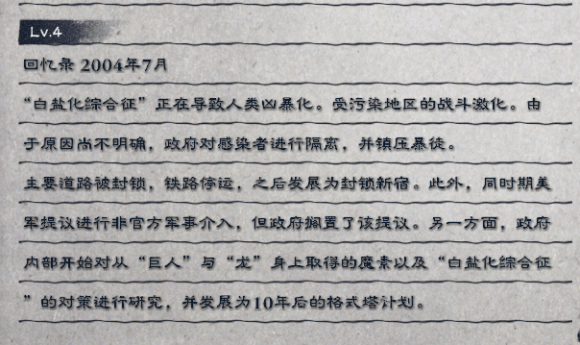 Lv.4
回忆录 2004年7月
“白盐化综合征”正在导致人类凶暴化。受污染地区的战斗激化。由
于原因尚不明确，政府对感染者进行隔离，并镇压暴徒。
主要道路被封锁，铁路停运，之后发展为封锁新宿。此外，同时期美
军提议进行非官方军事介入，但政府搁置了该提议。另一方面，政府
内部开始对从“巨人”与“龙”身上取得的魔素以及“白盐化综合征
”的对策进行研究，并发展为10年后的格式塔计划。